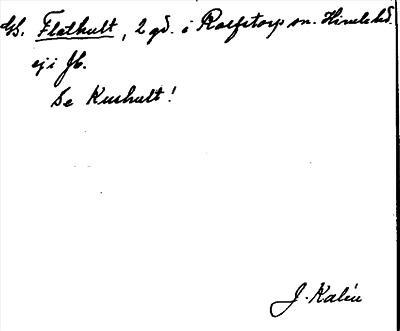 Gs. Flathult, 2 gd. i Rolfstorp sn. Himle hd.
ej i Jb.
Se Kushult!
J. Kalén